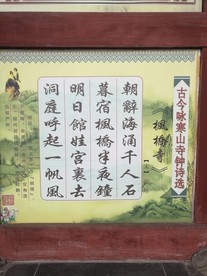 古今咏寒山寺钟诗选
楓橋寺
朝辭海涌千人石
暮宿楓橋半夜鐘
明日館娃宮裏去
洞庭呼起一帆風